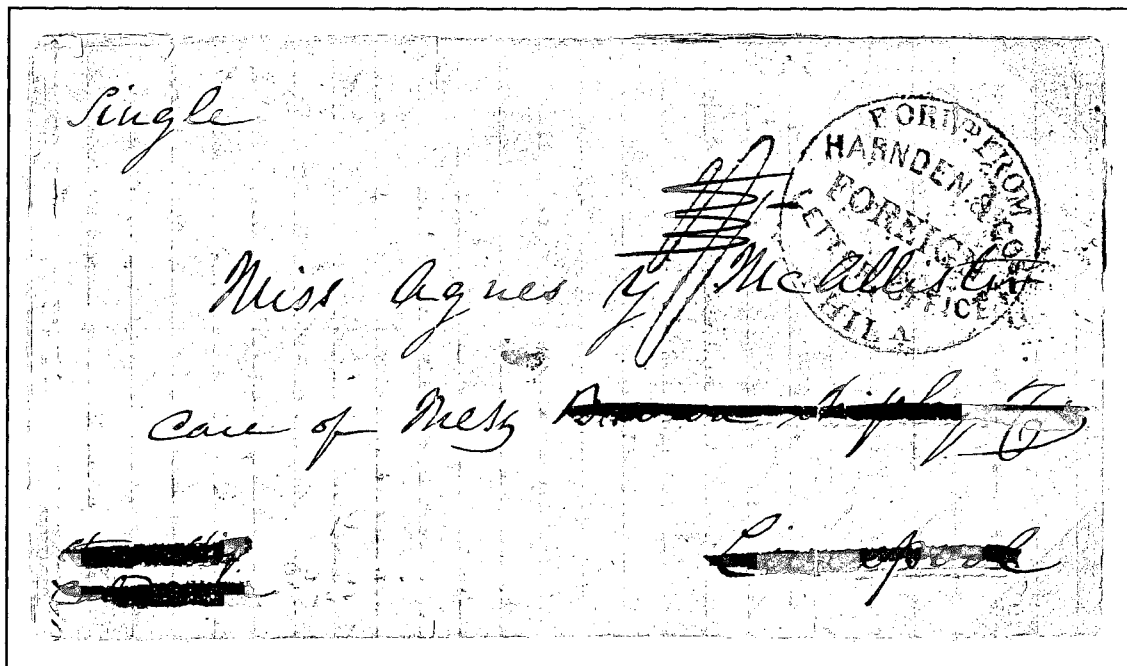 Single
FORD. FROM
HARNDEN & CO'S
FOREIGN
LETTER OFFICE
PHILA
Miss Agnes Y McAllister
care of Mess Shipley
Liverpool